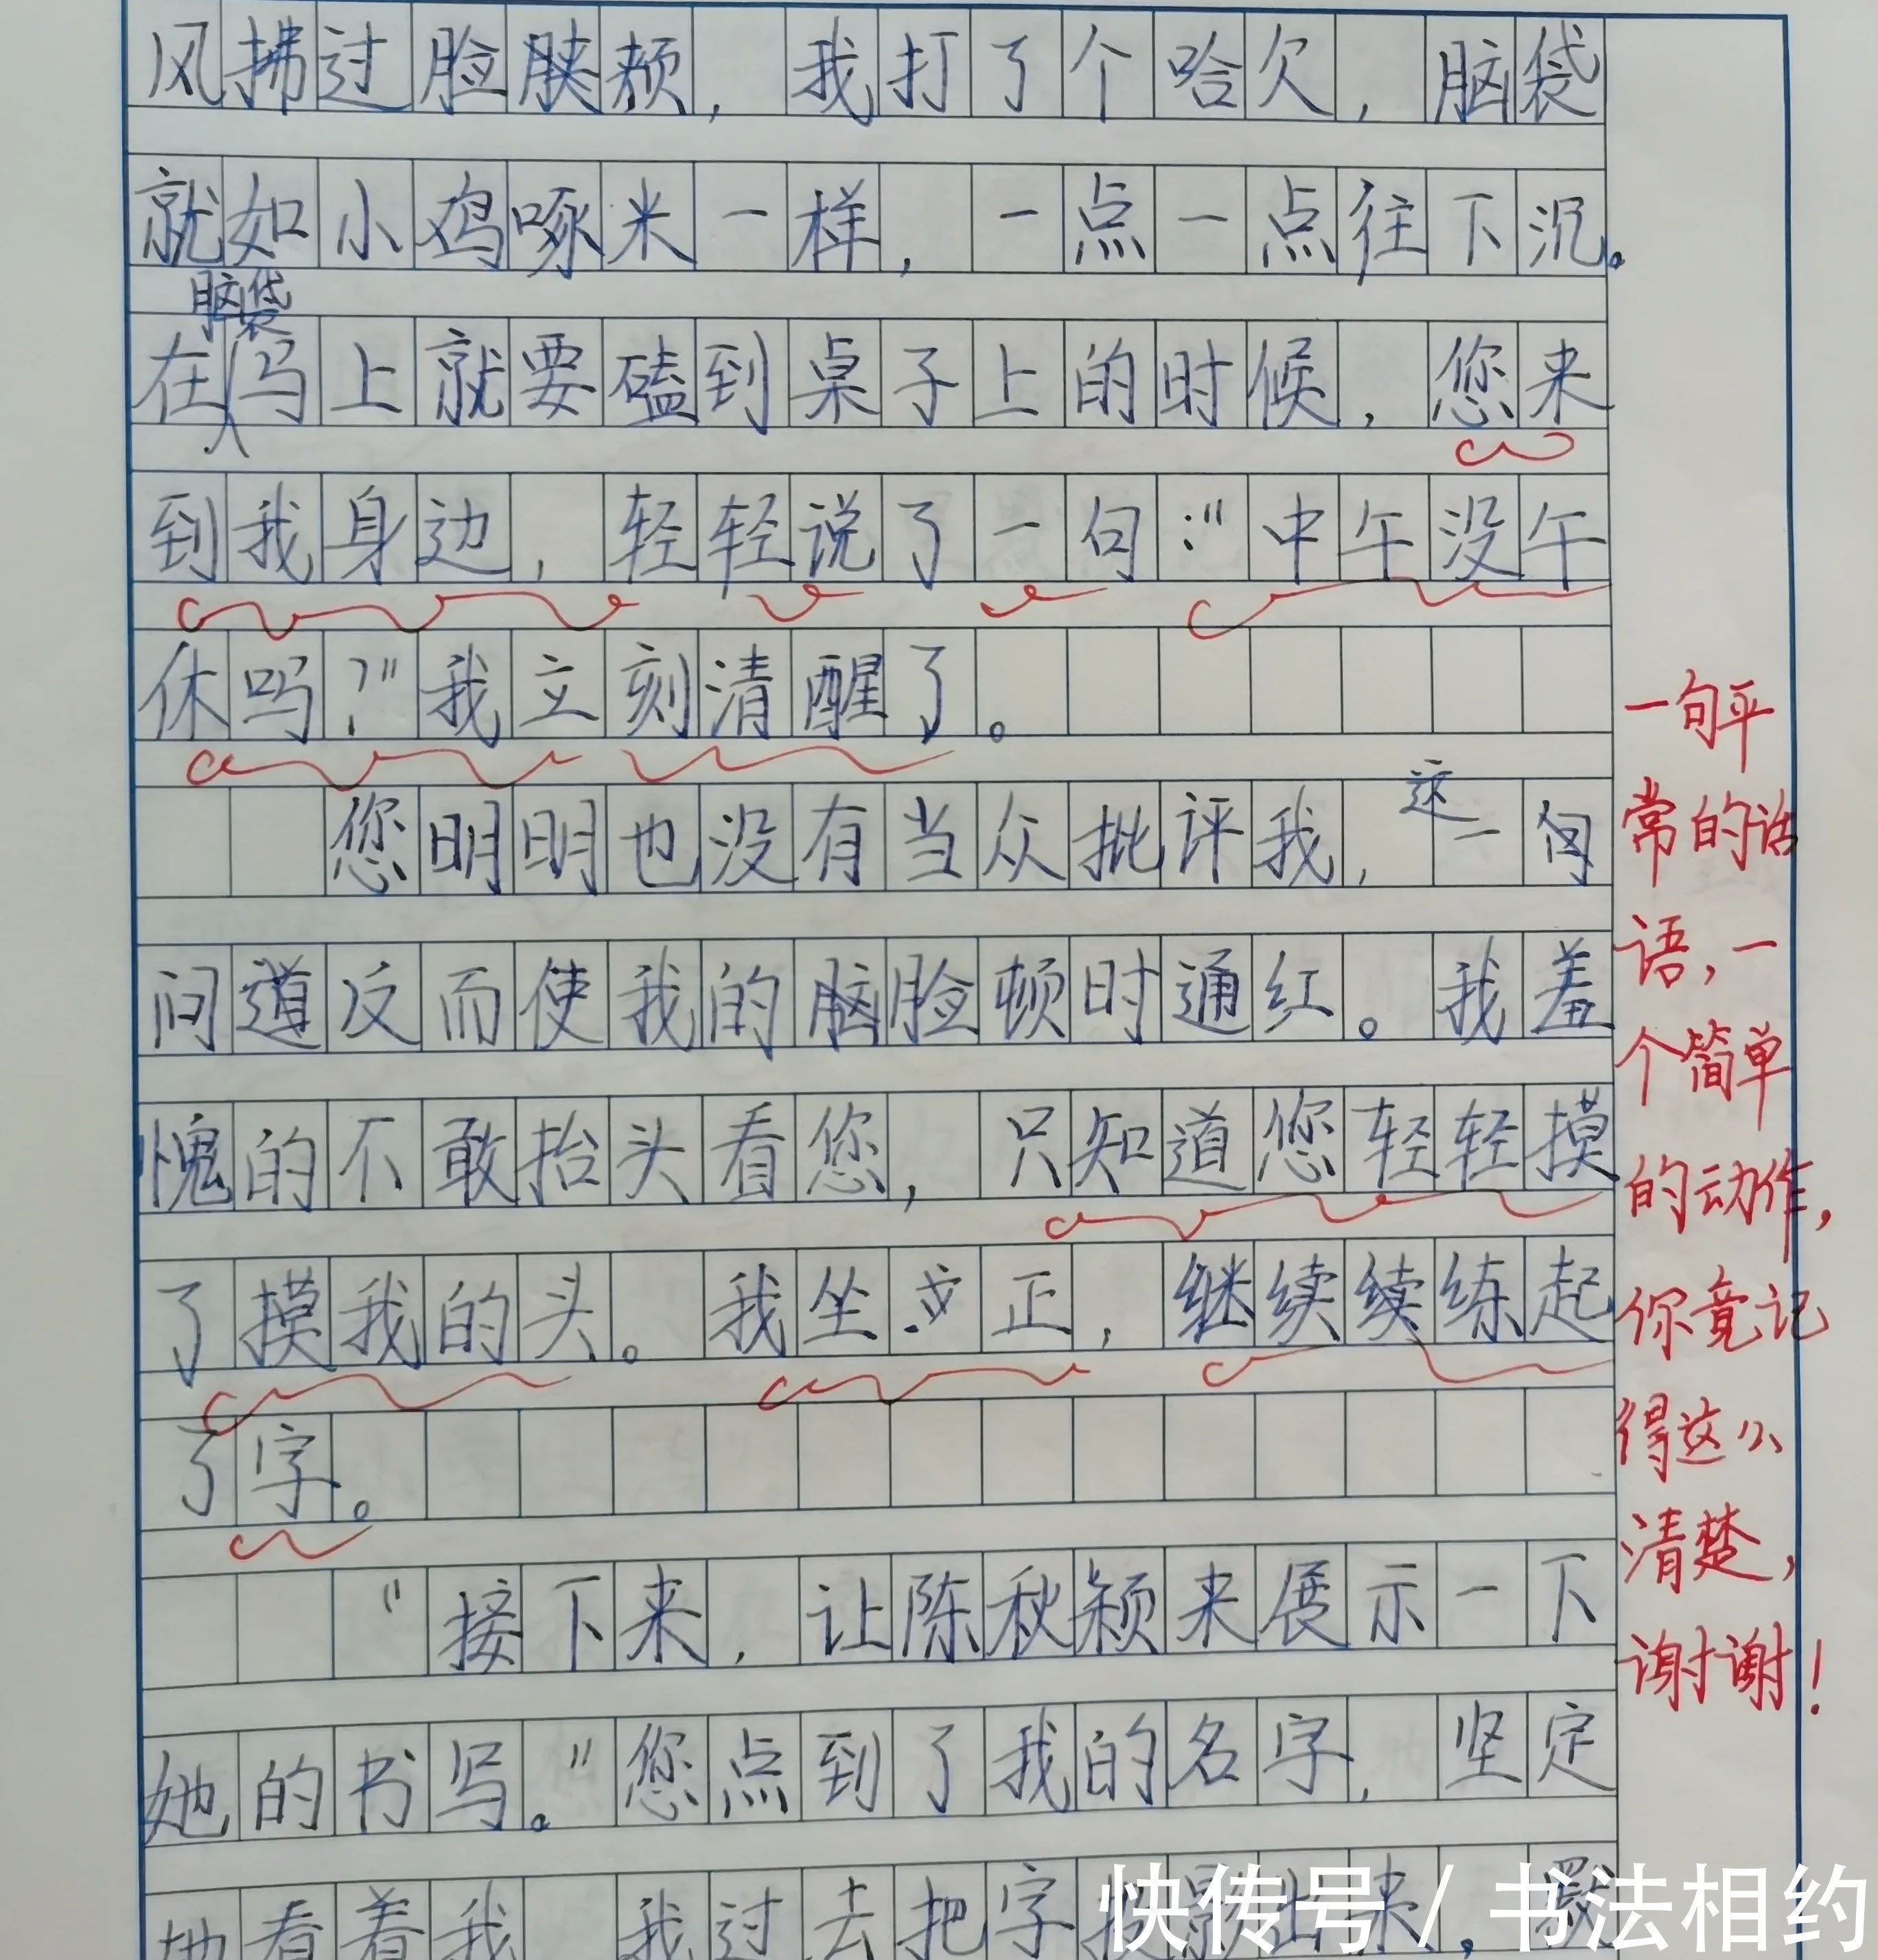 风拂过脸颊，我打了个哈欠，脑袋
就如小鸡啄米一样，一点一点往下沉。
脑袋
在马上就要磕到桌子上的时候，您来
到我身边，轻轻说了一句："中午没午
休吗？"我立刻清醒了。
您明明也没有当众批评我，这一句
问道反而使我的脸顿时通红。我羞
愧的不敢抬头看您，只知道您轻轻摸
了摸我的头。我坐正，继续练起
了字。
"接下来，让陈秋颖来展示一下
她的书写。"您点到了我的名字，坚定
地看着我，我过去把字投影出来，
一句平
常的话
语，一
个简单
的动作，
你竟记
得这么
清楚，
谢谢！
快传号 / 书法相约